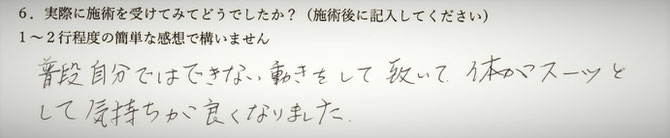 6．実際に施術を受けてみてどうでしたか？（施術後に記入してください）
1～2行程度の簡単な感想で構いません
普段自分ではできない動きをして頂いて体がスーッと
して気持ちが良くなりました.